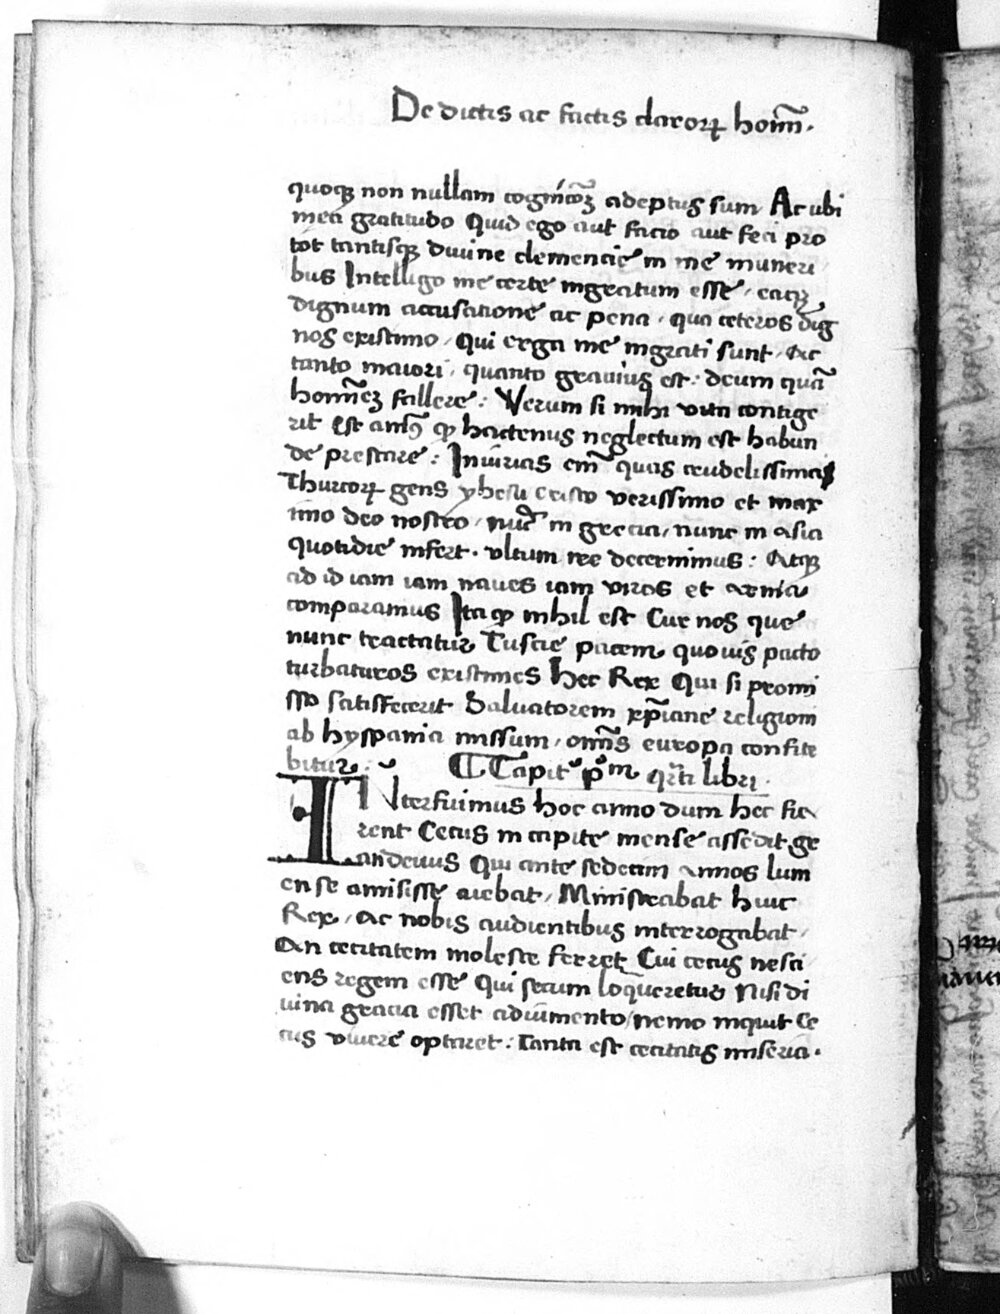 De dictis ac factis claroꝝ homĩ.
quoqꝫ non nullam cognicõꝫ adeptus sum Ac ubi
mea gratitudo Quid ego aut facio aut feci pro
tot tantisqꝫ diuine clemencie in me muneri
bus Intelligo me certe ingratum esse, eaqꝫ
dignum accusatione ac pena, qua ceteros dig
nos existimo, Qui erga me ingrati sunt, ac
tanto maiori, quanto grauius est: deum quã
homĩeꝫ fallere: Verum si mihi vita contige
rit Est anĩ9 ꝙ hactenus neglectum est habun
de prestare: Iniurias em̃ quas crudelissima
Thurcoꝝ gens yhesu Cristo verissimo et max
imo deo nostro, nũc in grecia, nunc in asia
quotidie infert. vltum ire decernimus: Atqꝫ
ad id iam iam naues iam viros et arma
comparamus Itaqꝫ nihil est Cur nos que
nunc tractatur Tuscie pacem quouis pacto
turbaturos existimes Hec Rex Qui si promi
sso satisfecerit Saluatorem xp̃iane religioni
ab hyspania missum, omĩs europa confite
bitur. Capitm̃ pm qrti libri.
INterfuimus hoc anno dum hec fie
rent Cecus in capite mense assedit ge
andeuus Qui ante sedecim annos lum
en se amisisse aiebat, Ministrabat huic
Rex, ac nobis audientibus interrogabat,
An cecitatem moleste ferret Cui cecus nesci
ens regem esse Qui secum loqueretur Nisi di
uina gracia esset adiumento, nemo inquit Ce
cus viuere optaret: Tanta est cecitatis miseria.